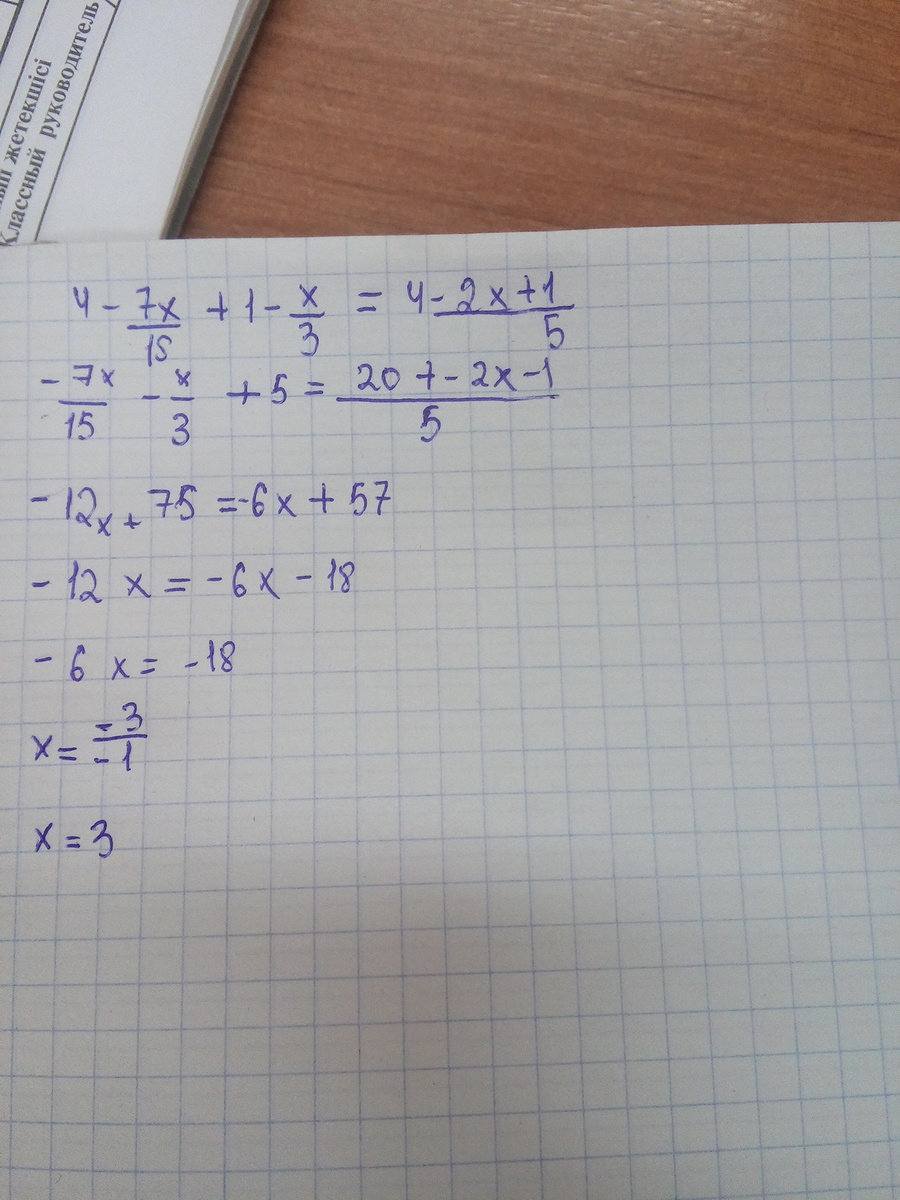 жетекшісі
Классный руководитель
4 - 7x/15 + 1 - x/3 = 4 - 2x+1/5
- 7x/15 - x/3 + 5 = 20 + - 2x - 1/5
- 12x + 75 = -6x + 57
- 12 x = - 6x - 18
- 6 x = - 18
x = -3/-1
x = 3